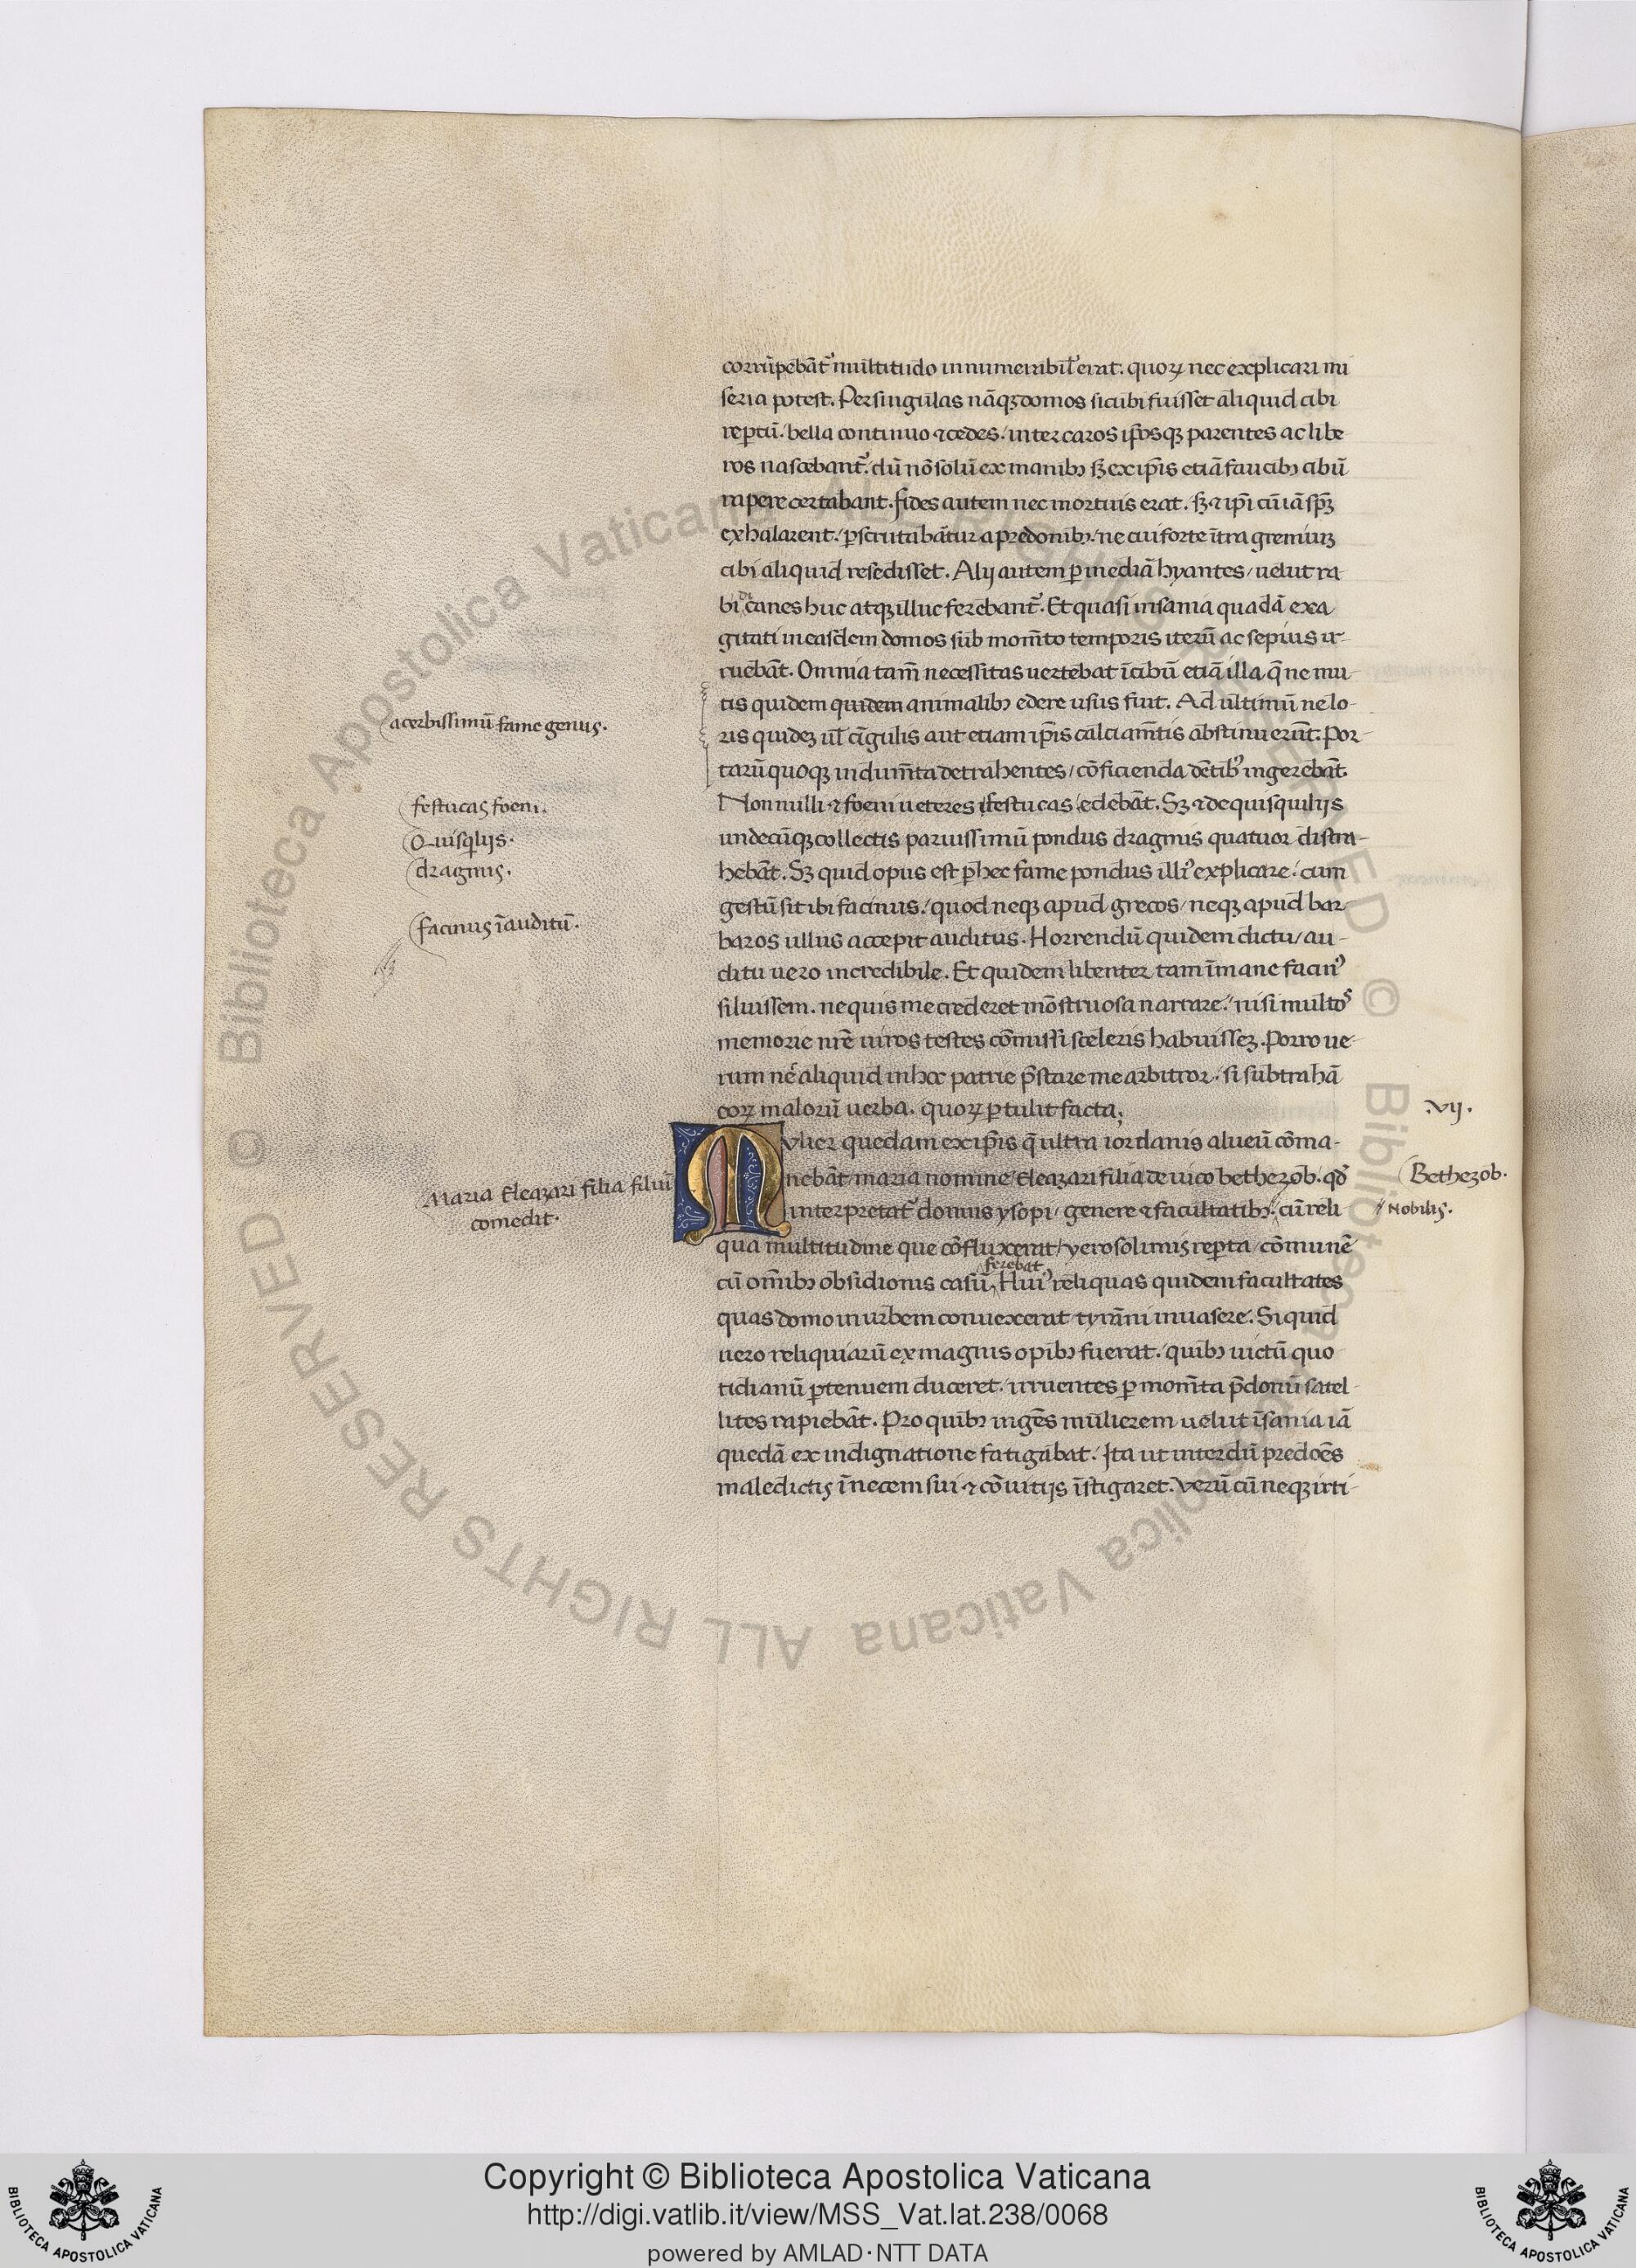 corrūpebāt᷒ multitudo innumerabil᷒ erat. quoꝝ nec explicari mi
seria potest. Per singulas nāqꝫ domos sicubi fuisset aliquid cibi
reptū. bella continuo ⁊ cedes. inter caros ip̄osqꝫ parentes ac libe
ros nascebant᷒. dū nō solū ex manibꝫ sꝫ ex ip̄is etiā faucibꝫ cibū
rapere certabant. fides autem nec mortuis erat. sꝫ ⁊ ip̄i cū iā sp̄ꝫ
exhalarent. ꝑscrutabātur a predonibꝫ. ne cui forte ītra gremiuꝫ
cibi aliquid resedisset. Alij autem ꝑ inediā hyantes / uelut ra
bidi canes huc atqꝫ illuc ferebant᷒. Et quasi insania quadā exa
gitati in easdem domos sub mom̄to temporis iterū ac sepius ir-
ruebāt. Omnia tam̄ necessitas uertebat ī cibū etiā illa q̄ ne mu-
tis quidem quidem animalibꝫ edere usus fuit. Ad ultimū ne lo-
ris quideꝫ ul̄ cīgulis aut etiam ip̄is calciam̄tis abstinuerūt. Por-
tarū quoqꝫ indum̄ta detrahentes / cōficienda dētibꝫ ingerebāt.
Nonnulli ⁊ foeni ueteres festucas edebāt. Sꝫ ⁊ de quisquilijs
undecūqꝫ collectis paruissimū pondus dragmis quatuor distra-
hebāt. Sꝫ quid opus est ꝑ hec fame pondus illiꝰ explicare. cum
gestū sit ibi facinus. quod neqꝫ apud grecos / neqꝫ apud bar
baros ullus accepit auditus. Horrendū quidem dictu / au-
ditu uero incredibile. Et quidem libenter tam īmane facinꝰ
siluissem. ne quis me crederet mōstruosa narrare. nisi multos
memorie nr̄e uiros testes cōmissi sceleris habuisseꝫ. Porro ue-
rum nec̄ aliquid in hoc patrie p̄stare me arbitror. si subtrahā
eoꝝ malorū uerba. quoꝝ ꝑtulit facta;
Mulier quedam ex ip̄is q̄ ultra iordanis alueū cōma-
nebāt / maria nomine / Eleazari filia de uico bethezob. qd̄
interpretat᷒ domus ysopi / genere ⁊ facultatibꝫ. cū reli
qua multitudine que cōfluxerat / yerosolimis repta / cōmunē
ferebat.
cū om̄ibꝫ obsidionis casū, Huiꝰ reliquas quidem facultates
quas domo in urbem conuexerat tyrāni inuasere. Si quid
uero reliquiarū ex magnis opibꝫ fuerat. quibꝫ uictū quo
tidianū ꝑtenuem duceret. irruentes ꝑ mom̄ta p̄donū satel-
lites rapiebāt. Pro quibꝫ ingēs mulierem uelut īsania iā
quedā ex indignatione fatigabat. Ita ut interdū predoēs
maledictis ī necem sui ⁊ cōuitijs īstigaret. Verū cū neqꝫ irri-
acerbissimū fame genus.
festucas foeni.
Quisqlijs.
dragmis.
facinus īauditū.
Maria Eleazari filia filiū
comedit.
.vij.
Bethezob.
Nobilis.
Copyright © Biblioteca Apostolica Vaticana
http://digi.vatlib.it/view/MSS_Vat.lat.238/0068
powered by AMLAD·NTT DATA
BIBLIOTECA APOSTOLICA VATICANA
BIBLIOTECA APOSTOLICA VATICANA
© Biblioteca Apostolica Vaticana ALL RIGHTS RESERVED © Biblioteca Apostolica Vaticana ALL RIGHTS RESERVED